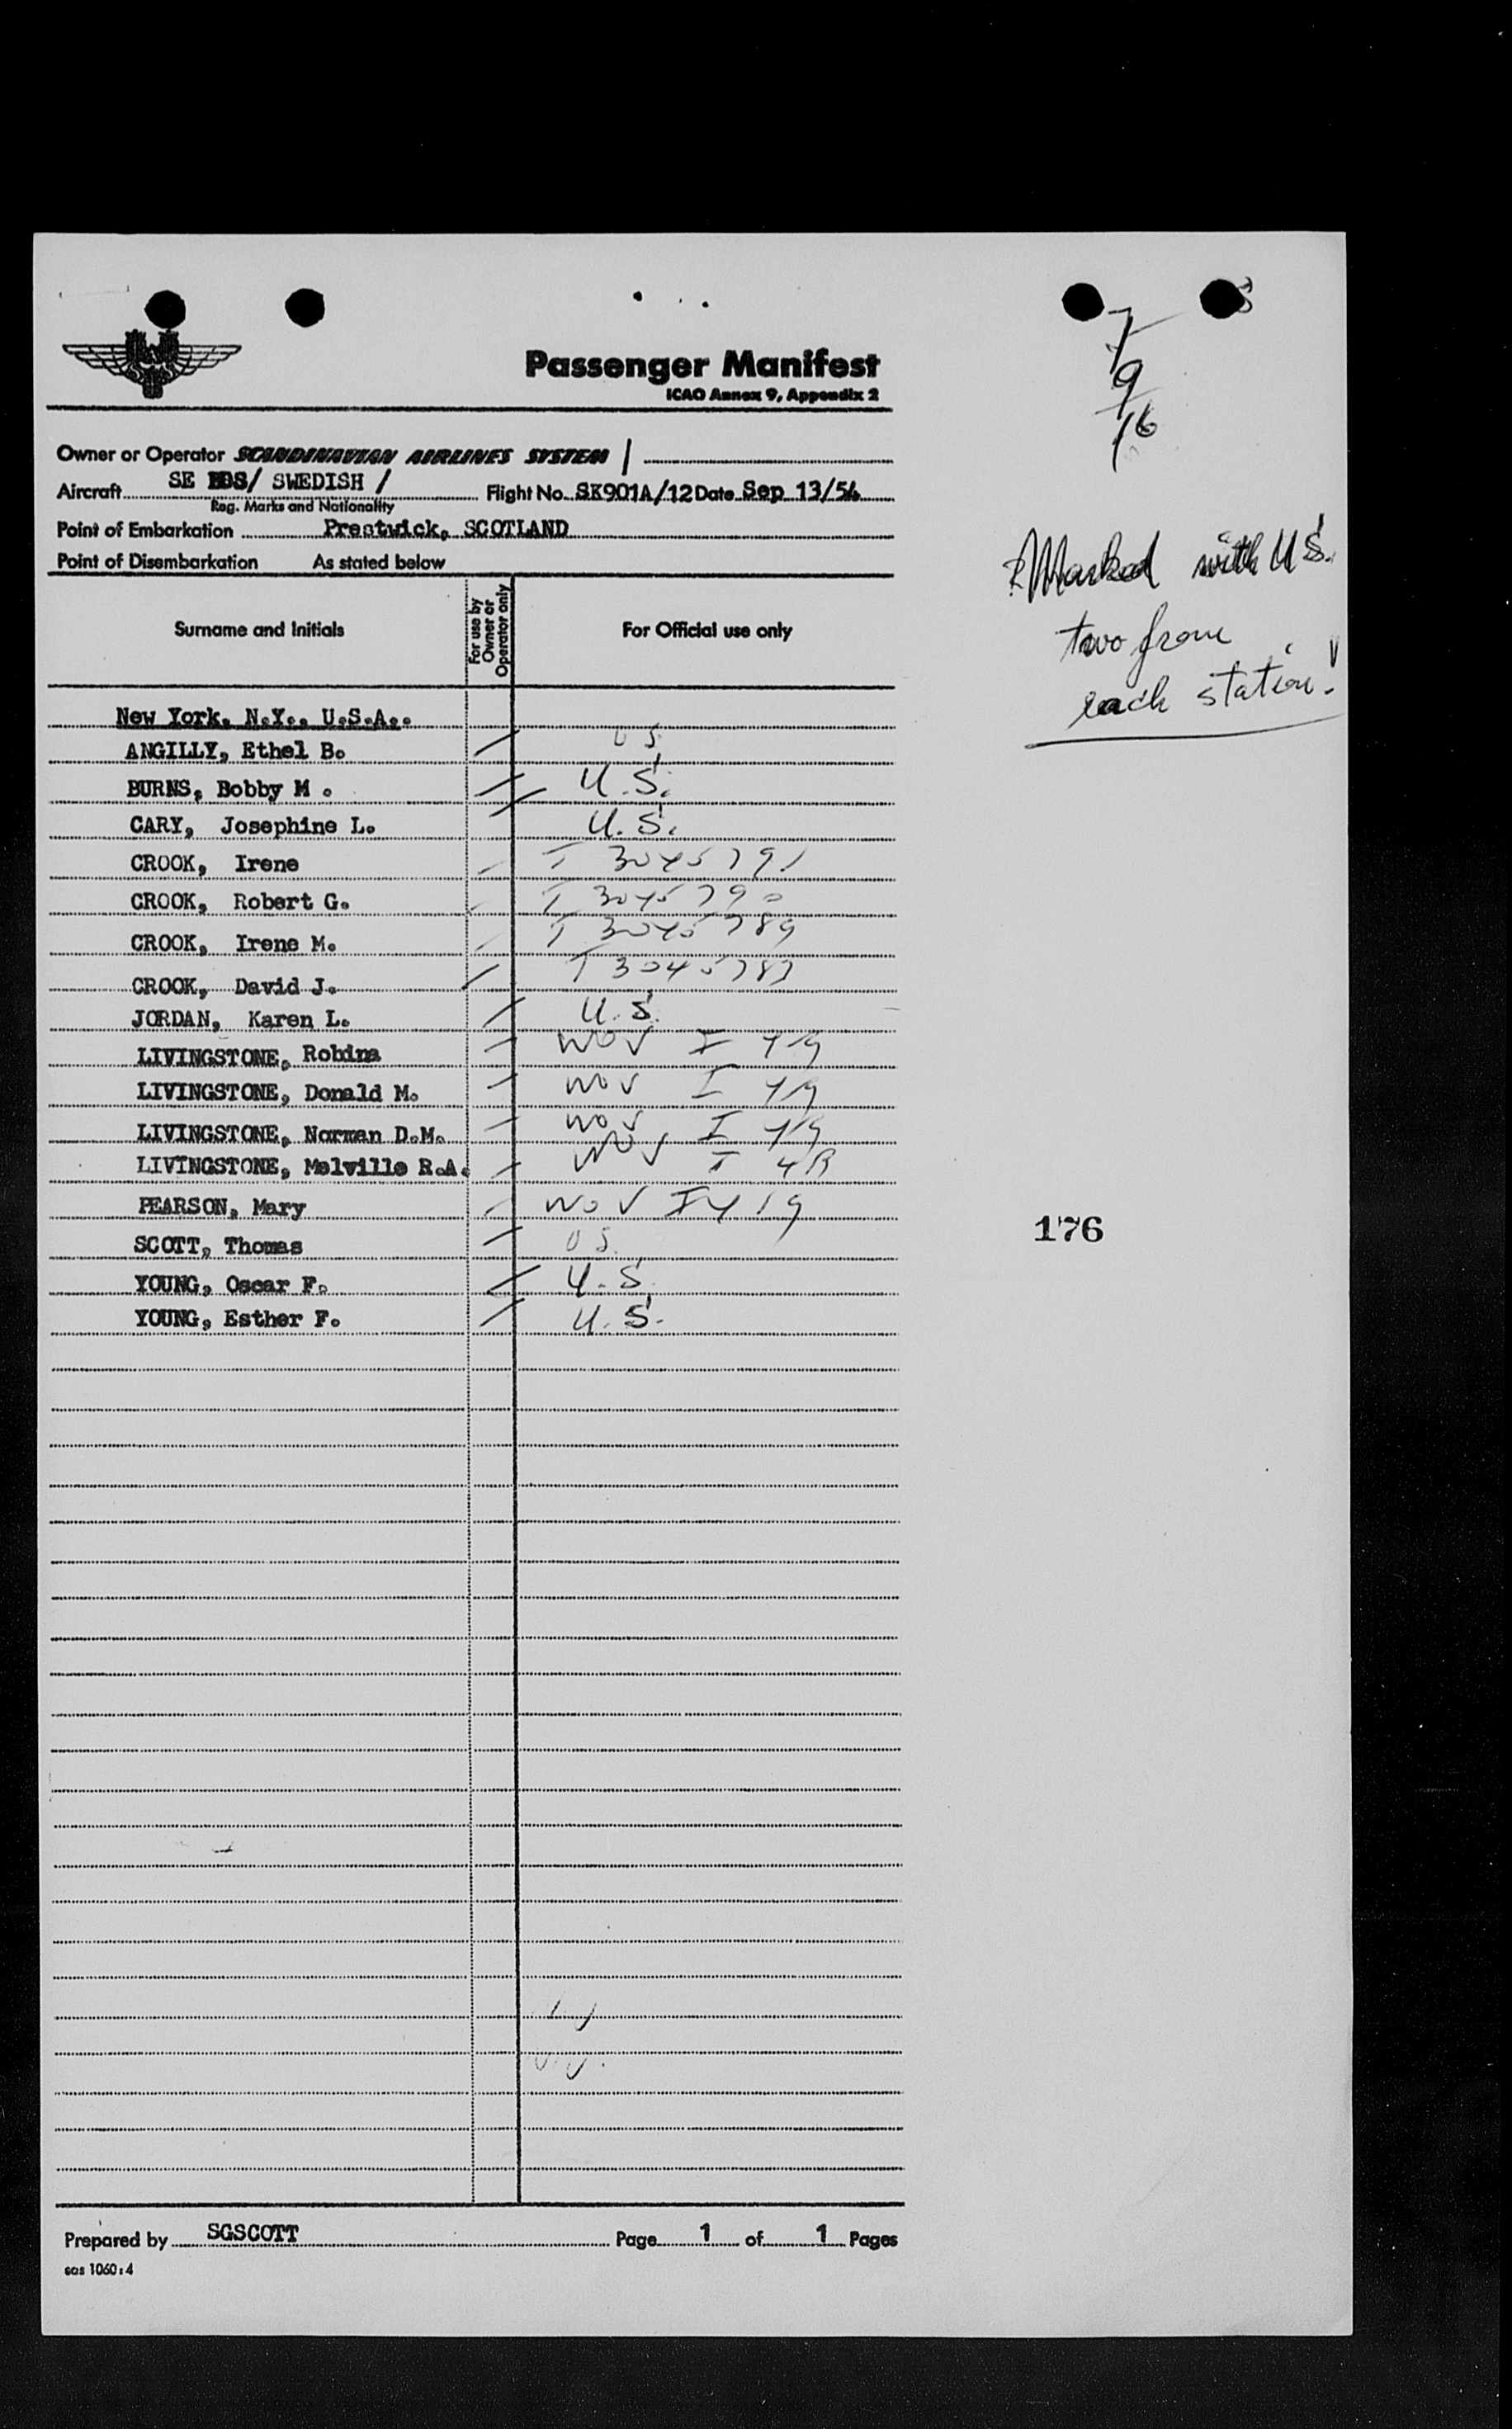 Passenger Manifest
ICAO Annex 9, Appendix 2
7
9
16
Owner or Operator SCANDINAVIAN AIRLINES SYSTEM /
Aircraft SE BDS/ SWEDISH / Flight No. SK901A/12 Date Sep 13/54
Reg. Marks and Nationality
Point of Embarkation Prestwick, SCOTLAND
Point of Disembarkation As stated below
Marked with U.S.
two from
each station!
Surname and Initials For use by Owner or Operator only For Official use only
New York, N.Y., U.S.A..
ANGILLY, Ethel B. US
BURNS, Bobby M . U.S.
CARY, Josephine L. U.S.
CROOK, Irene T 3045791
CROOK, Robert G. T 3045790
CROOK, Irene M. T 3045789
CROOK, David J. T 3045787
JORDAN, Karen L. U.S.
LIVINGSTONE, Robina NOV I 419
LIVINGSTONE, Donald M. NOV I 419
LIVINGSTONE, Norman D.M. NOV I 419
LIVINGSTONE, Melville R.A. NOV I 419
PEARSON, Mary NOV I 419
SCOTT, Thomas US.
YOUNG, Oscar F. U.S.
YOUNG, Esther F. U.S.
176
Prepared by SGSCOTT Page 1 of 1 Pages
sas 1060:4